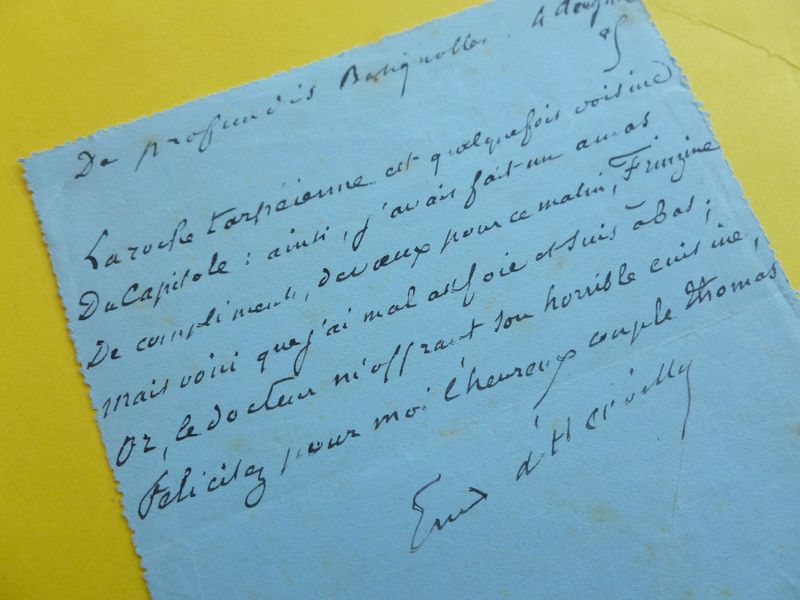 De profundis Batignolles. 4
La roche tarpéienne est quelquefois voisine
Du Capitole : ainsi, j'avais fait un amas
De compliments, de vœux pour ce matin,
Mais voici que j'ai mal au foie et suis à bas ;
Or, le docteur m'offrant son horrible cuisine,
Félicitez pour moi l'heureux couple Thomas
Ernest d'Hervilly